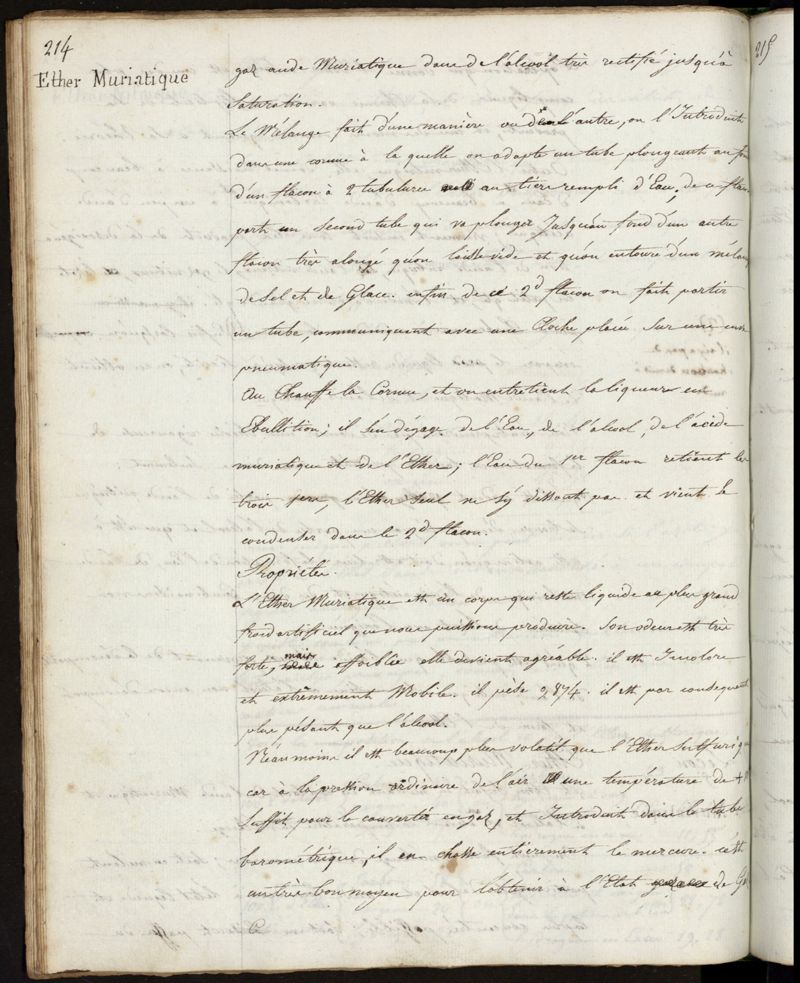 214
Ether Muriatique
gaz acide Muriatique dans de l'alcool très rectifié jusqu'à
Saturation.
Le Mélange fait d'une manière ou de l'autre, on l'Introduit
dans une cornue à la quelle on adapte un tube plongeant au
d'un flacon à 2 tubulures au tiers rempli d'Eau, de ce flacon
part un second tube qui va plonger Jusqu'au fond d'un autre
flacon très alongé qu'on laisse vide et qu'on entoure d'un mélan
de Sel et de Glace. enfin de ce 2d flacon on fait partir
un tube, communiquant avec une Cloche placée sur une cuve
pneumatique.
On Chauffe la Cornue, et on entretient la liqueur en
Ebullition; il s'en dégage de l'Eau, de l'alcool, de l'acide
muriatique et de l'Ether; l'Eau du 1er flacon retient les
trois 1ers, l'Ether seul ne s'y dissout pas et vient se
condenser dans le 2d flacon.
Propriétés.
L'Ether Muriatique est un corps qui reste liquide au plus grand
froid artificiel que nous puissions produire. Son odeur est très
forte, mais affoiblie elle devient agréable. il est Incolore
et extrêmement Mobile. il pèse 2874. il est par conséquent
plus pésant que l'alcool.
Néanmoins il est beaucoup plus volatil que l'Ether Sulfuriq
car à la pression ordinaire de l'air une température de +
Suffit pour le convertir en gaz, et Introduit dans le tube
barométrique, il en chasse entièrement le mercure. c'est
un très bon moyen pour l'obtenir à l'Etat de
215